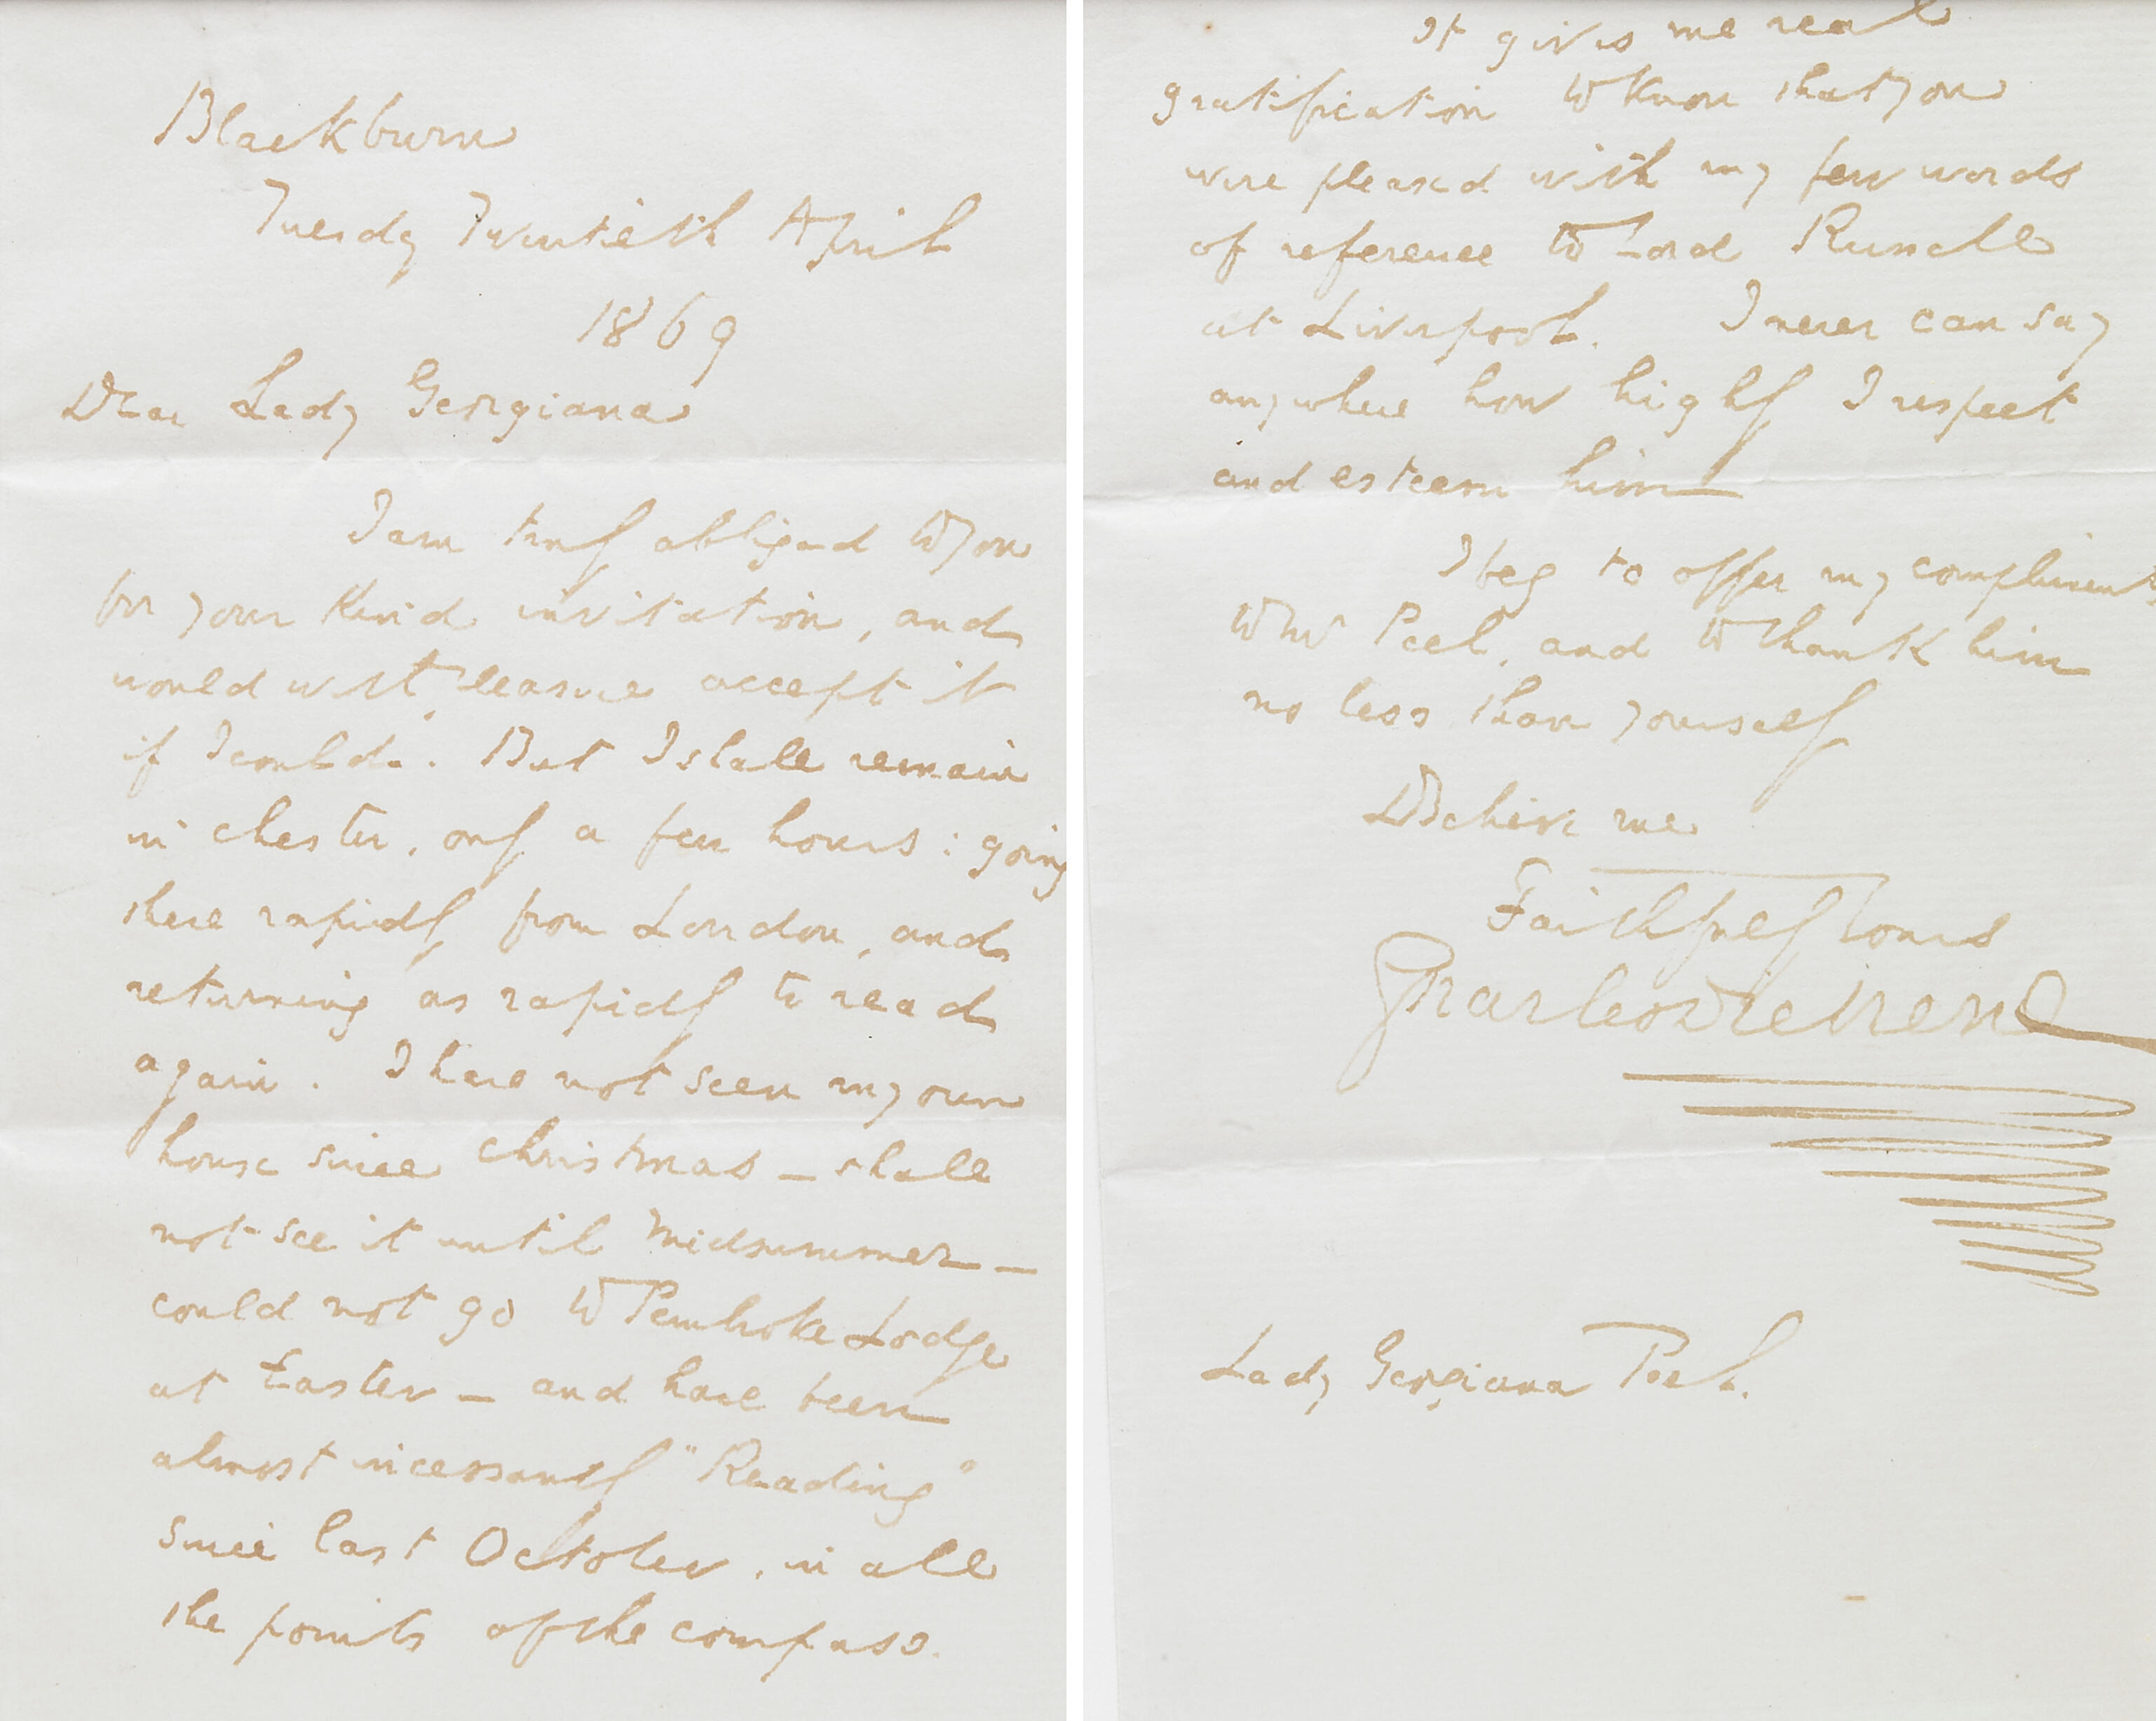 Blackburn
Tuesday Twentieth April
1869
Dear Lady Georgiana
I am truly obliged to you
for your kind invitation, and
would with pleasure accept it
if I could. But I shall remain
in Chester, only a few hours: going
there rapidly from London, and
returning as rapidly to read
again. I have not seen my own
house since Christmas – shall
not see it until Midsummer –
could not go to Pembroke Lodge
at Easter – and have been
almost incessantly "Reading"
since last October, in all
the points of the compass.
It gives me real
gratification to know that you
were pleased with my few words
of reference to Lord Russell
at Liverpool. I never can say
anywhere how highly I respect
and esteem him
I beg to offer my compliments
to Mr Peel, and to thank him
no less than yourself
Believe me
Faithfully Yours
Charles Dickens
Lady Georgiana Peel.